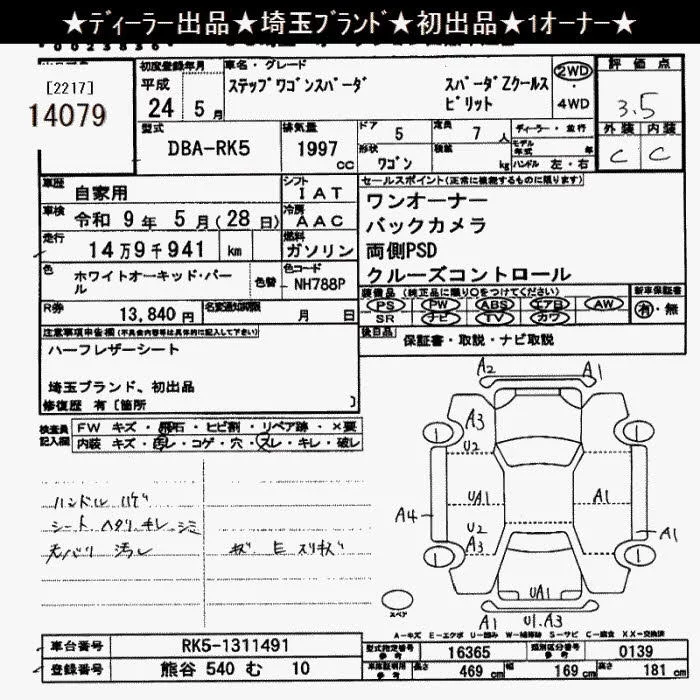 ★ディーラー出品★埼玉ブランド★初出品★1オーナー★
[2217]
14079
初度登録年月
平成
24 5 月
車名・グレード
ステップワゴンスパーダ
スパーダZクールス
ピリット
2WD
・
4WD
評価点
3.5
外装 内装
C C
型式
DBA-RK5
排気量
1997 CC
ドア 5
定員 7 人
形状 ワゴン
積載 kg
ディーラー・並行
モデル年式 年
ハンドル 左・右
車歴
自家用
シフト
IAT
車検
令和 9 年 5 月(28 日)
冷房
AAC
走行
14万9千941 km
燃料
ガソリン
色
ホワイトオーキッド・パー
ル
色替
色コード
NH788P
R券
13,840 円
名変通知期限
月 日
セールスポイント(正常に機能するものに限ります)
ワンオーナー
バックカメラ
両側PSD
クルーズコントロール
装備品(純正品に限り○をつけてください)
PS PW ABS エアB AW
SR ナビ TV カワ
新車保証書
有・無
後日品
保証書・取説・ナビ取説
注意事項申告欄(不具合内容等は具体的に記入して下さい)
ハーフレザーシート
埼玉ブランド、初出品
修復歴 有[箇所 ]
検査員
記入欄
FW キズ・飛石・ヒビ割・リペア跡・×要
内装 キズ・汚レ・コゲ・穴・スレ・キレ・破レ
ハンドル ハゲ
シート ヘタリ キレ シミ
天バリ 汚レ
A2 A1
1 A3 1
U2
UA1 A1
A4
U2
A3 A1
1 1
UA1
A1 U1.A3
スペア
A-キズ E-エクボ U-凹み W-補修跡 S-サビ C-腐食 XX-交換済
車台番号
RK5-1311491
登録番号
熊谷 540 む 10
型式指定番号
参考
16365
類別区分番号
参考
0139
車庫証明用
参考
長さ 469 cm 幅 169 cm 高さ 181 cm